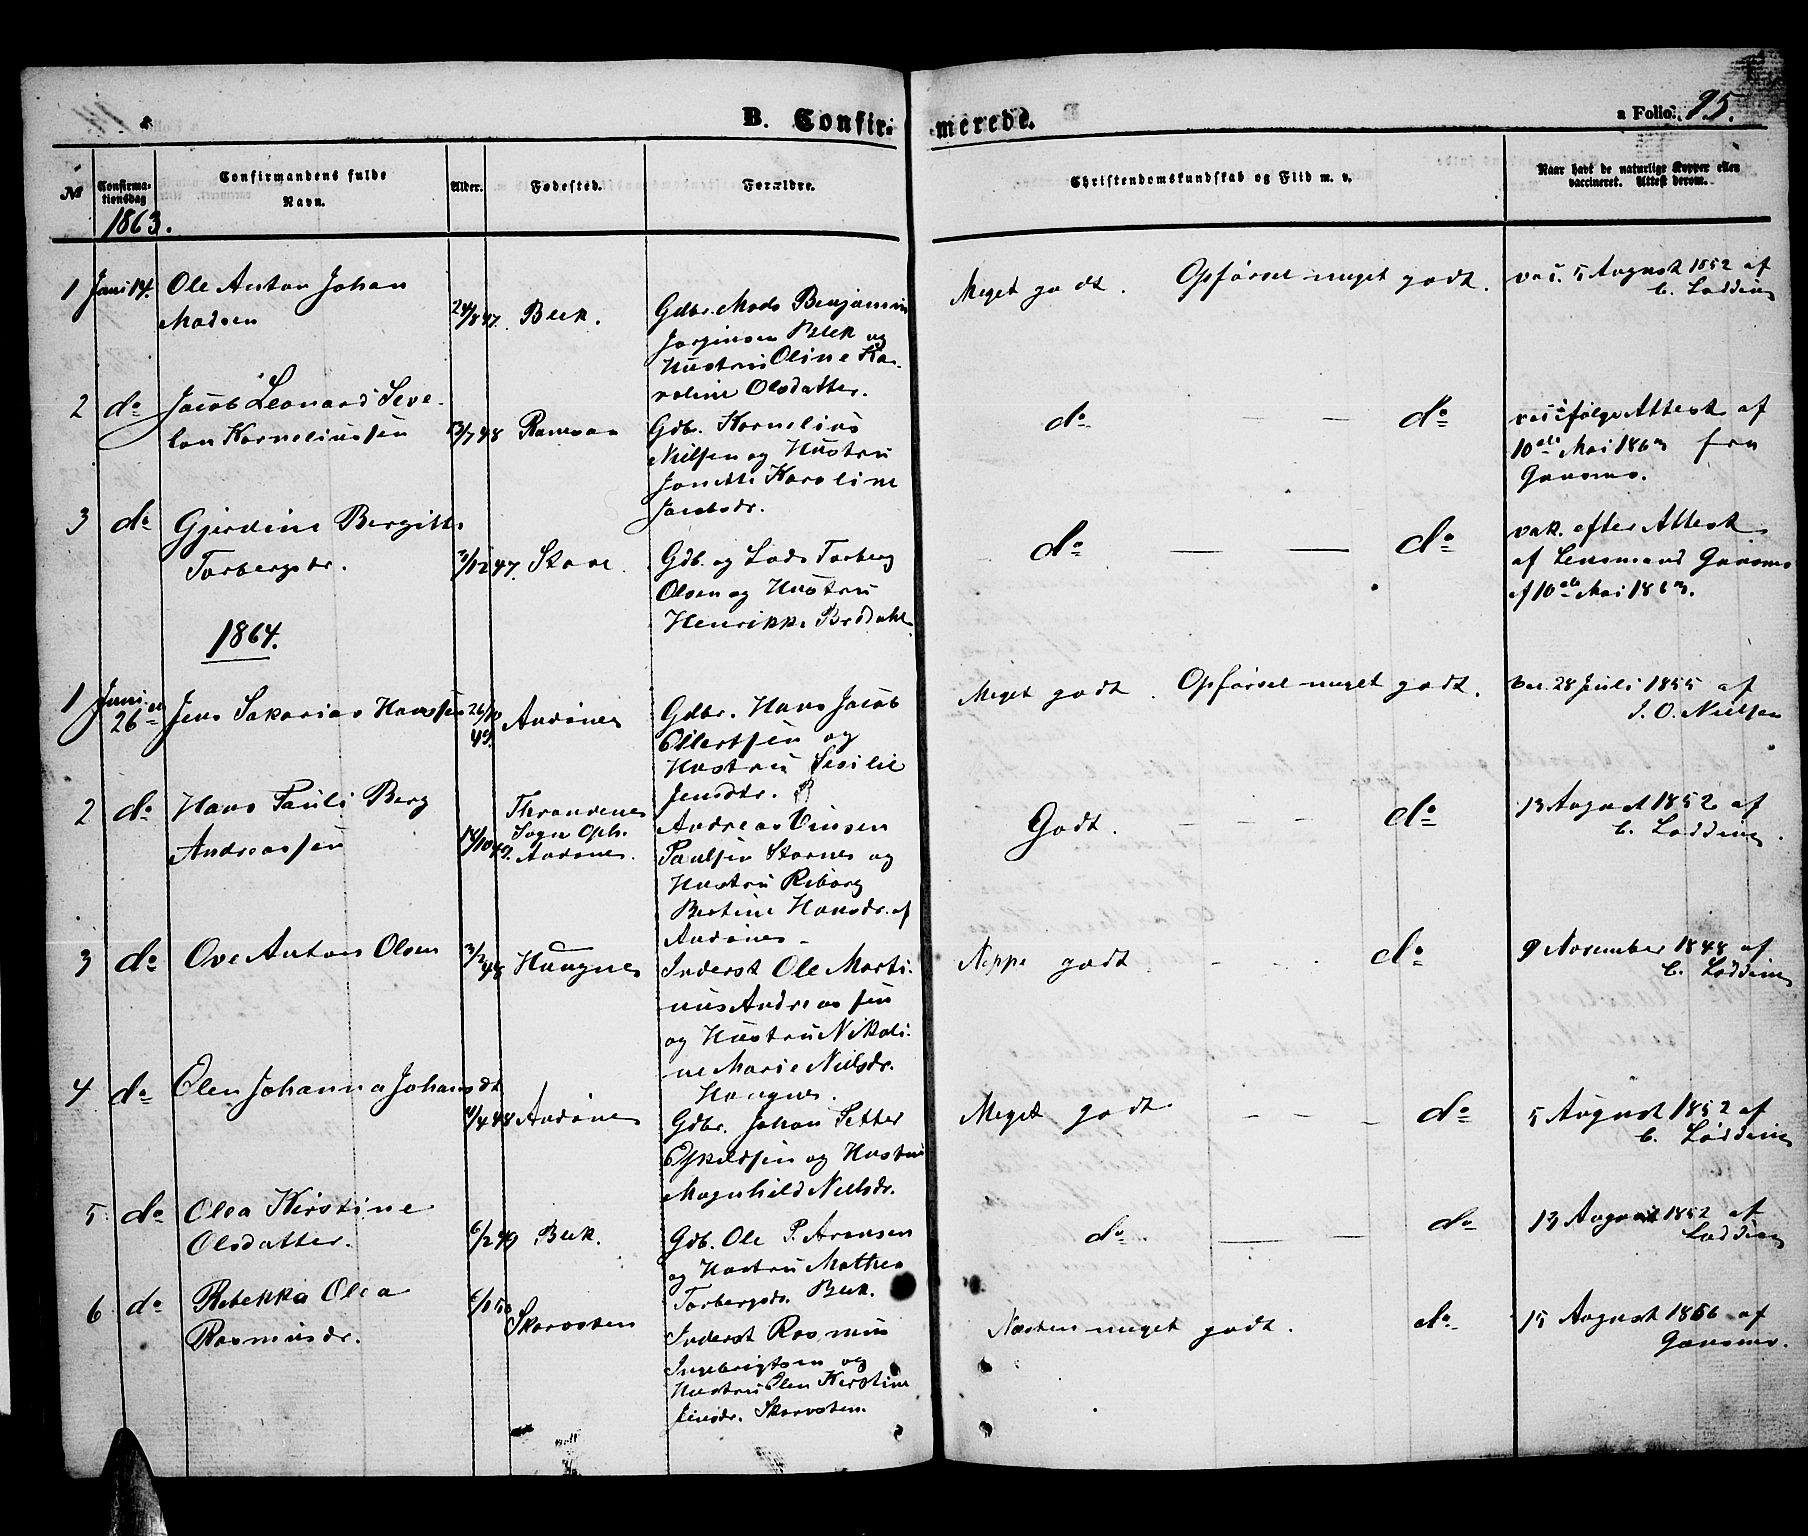 B. Confir- merede.
a Folio. 95.
№
Confirma-
tionsdag
Confirmandens fulde
Navn.
Alder.
Fødested.
Forældre.
Christendomskundskab og Flid m. v.
Naar havt de naturlige Kopper eller
vaccineret. Attest derom.
1863.
1 Juni 14. Ole Anton Johan
Madsen
24/8 47. Bek.
Gdbr. Mads Benjamin
Jørginsen Bek og
Hustru Oline Ka-
roline Olsdatter.
Meget godt. Opførsel meget godt.
vac. 5 August 1852 af
C. Lødding
2 do Jacob Leonard Seve-
lon Korneliussen
13/7 48
Gdb. Kornelius
Nielsen og Hustru
Janette Karoline
Jacobsdr.
do — — do
ifølge Attest af
10de Mai 1863 fra
Gansmo.
3 do Gjerdine Bergitte
Torbergsdr.
3/12 47. Skave.
Gdb. og Lods Torberg
Olsen og Hustru
Henrikke Brodahl
do — — do
vak. efter Attest
af Lensmand Gansmo
af 10de Mai 1863.
1864.
1 Juni
26 Jens Sakarias Hanssen
26/10
49 Andønes
Gdbr. Hans Jacob
Eilertsen og
Hustru Sesilie
Jensdtr.
Meget godt. Opførsel meget godt.
vac. 28 Juli 1855 af
J. O. Nielsen
2 do Hans Pauli Berg
Andreassen
14/10 49.
Thrandenes
Sogn Oph.
Andønes.
Andreas Vinsen
Paulsen Stornes og
Hustru Reborg
Bertine Hansdr. af
Andønes
Godt. — — do
13 August 1852 af
C. Lødding.
3 do Ove Anton Olsen
3/2 48 Haugnes
Inderst Ole Marti-
nus Andreassen
og Hustru Nikoli-
ne Marie Nielsdr.
Haugnes.
Neppe godt. — — do
9 November 1848 af
C. Lødding
4 do Elen Johanna Johansdt
4/4 48 Andønes
Gdbr. Johan Petter
Eskildsen og Hustru
Magnhild Nielsdr.
Meget godt — — do
5 August 1852 af
C. Lødding
5 do Olea Kirstine
Olsdatter.
6/2 49 Bek.
Gdb. Ole P. Arensen
og Hustru Mathea
Torbergsdr. Bek.
do — — do
13 August 1852 af
Lødding
6 do Rebekka Olea
Rasmusdr.
Skarvsten
Inderst Rasmus
Ingebrigtsen og
Hustru Elen Kirstine
Jensdr. Skarvsten.
Næsten meget godt. do
15 August 1856 af
Gansmo.